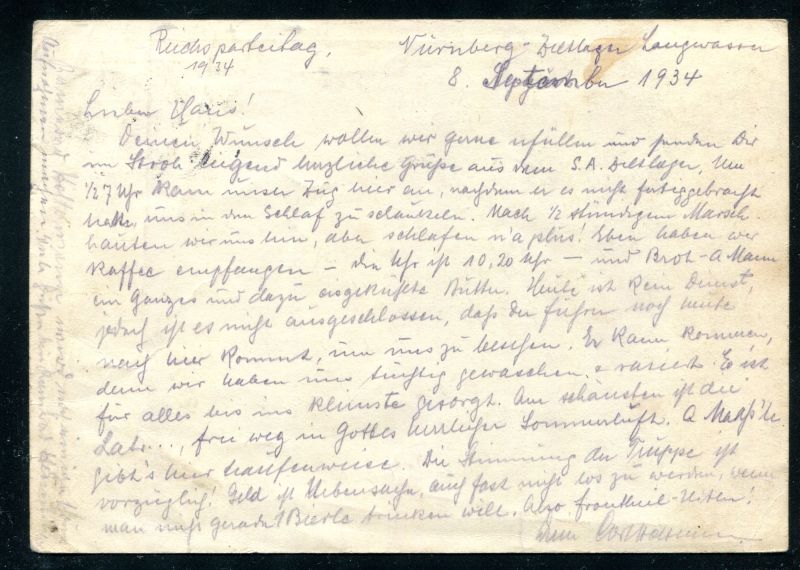 Reichsparteitag, Nürnberg - Zeltlager Langwasser
1934 8. September 1934
Lieber Hans!
Deinen Wunsch wollen wir gerne erfüllen und senden Dir
im Stroh liegend herzliche Grüße aus dem S.A. Zeltlager. Um
½7 Uhr kam unser Zug hier an, nachdem er es nicht fertiggebracht
hatte, uns in den Schlaf zu schaukeln. Nach ½ stündigem Marsch
hauten wir uns hin, aber schlafen n'a plus! Eben haben wir
Kaffee empfangen - die Uhr ist 10,20 Uhr - und Brot - A Mann
ein Ganzes und dazu Butter. Heute ist kein Dienst,
jedoch ist es nicht ausgeschlossen, daß der Führer noch heute
nach hier kommt, um uns zu besehen. Er kann kommen,
denn wir haben uns tüchtig gewaschen & rasiert. Es ist
für alles bis ins kleinste gesorgt. Am schönsten ist die
Latr..., frei weg in Gottes herrlicher Sommerluft. A
gibt's hier haufenweise. Die Stimmung der Truppe ist
vorzüglich! Geld ist Nebensache, auch fast nicht los zu werden, wenn
man nicht gerade 1 Bierle trinken will. Also
Dein